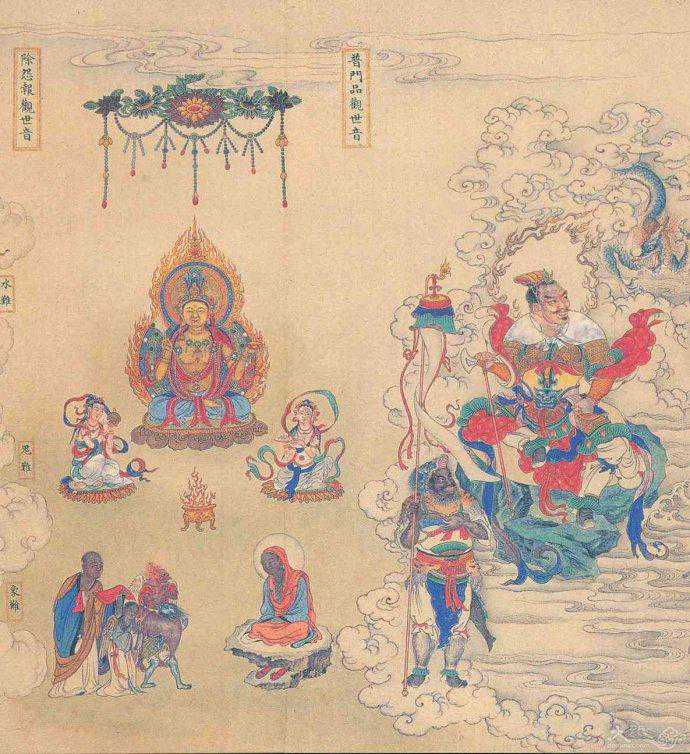 普門品觀世音
除怨報觀世音
水難
象難